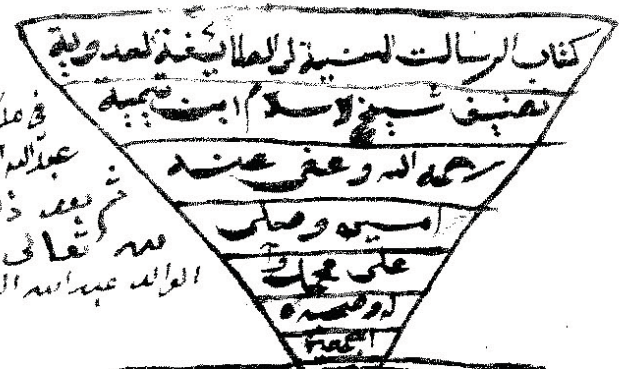 كتاب الرسالت السنية الى الطايفة العدوية
تصنيف شيخ الاسلام ابن تيمية
رحمه الله وعفى عنه
امين وصلى
على محمد وآ
له وصحبه
اجمعين
في
عبد الله
ثم بعد
الله تعالى
الوالد عبد الله